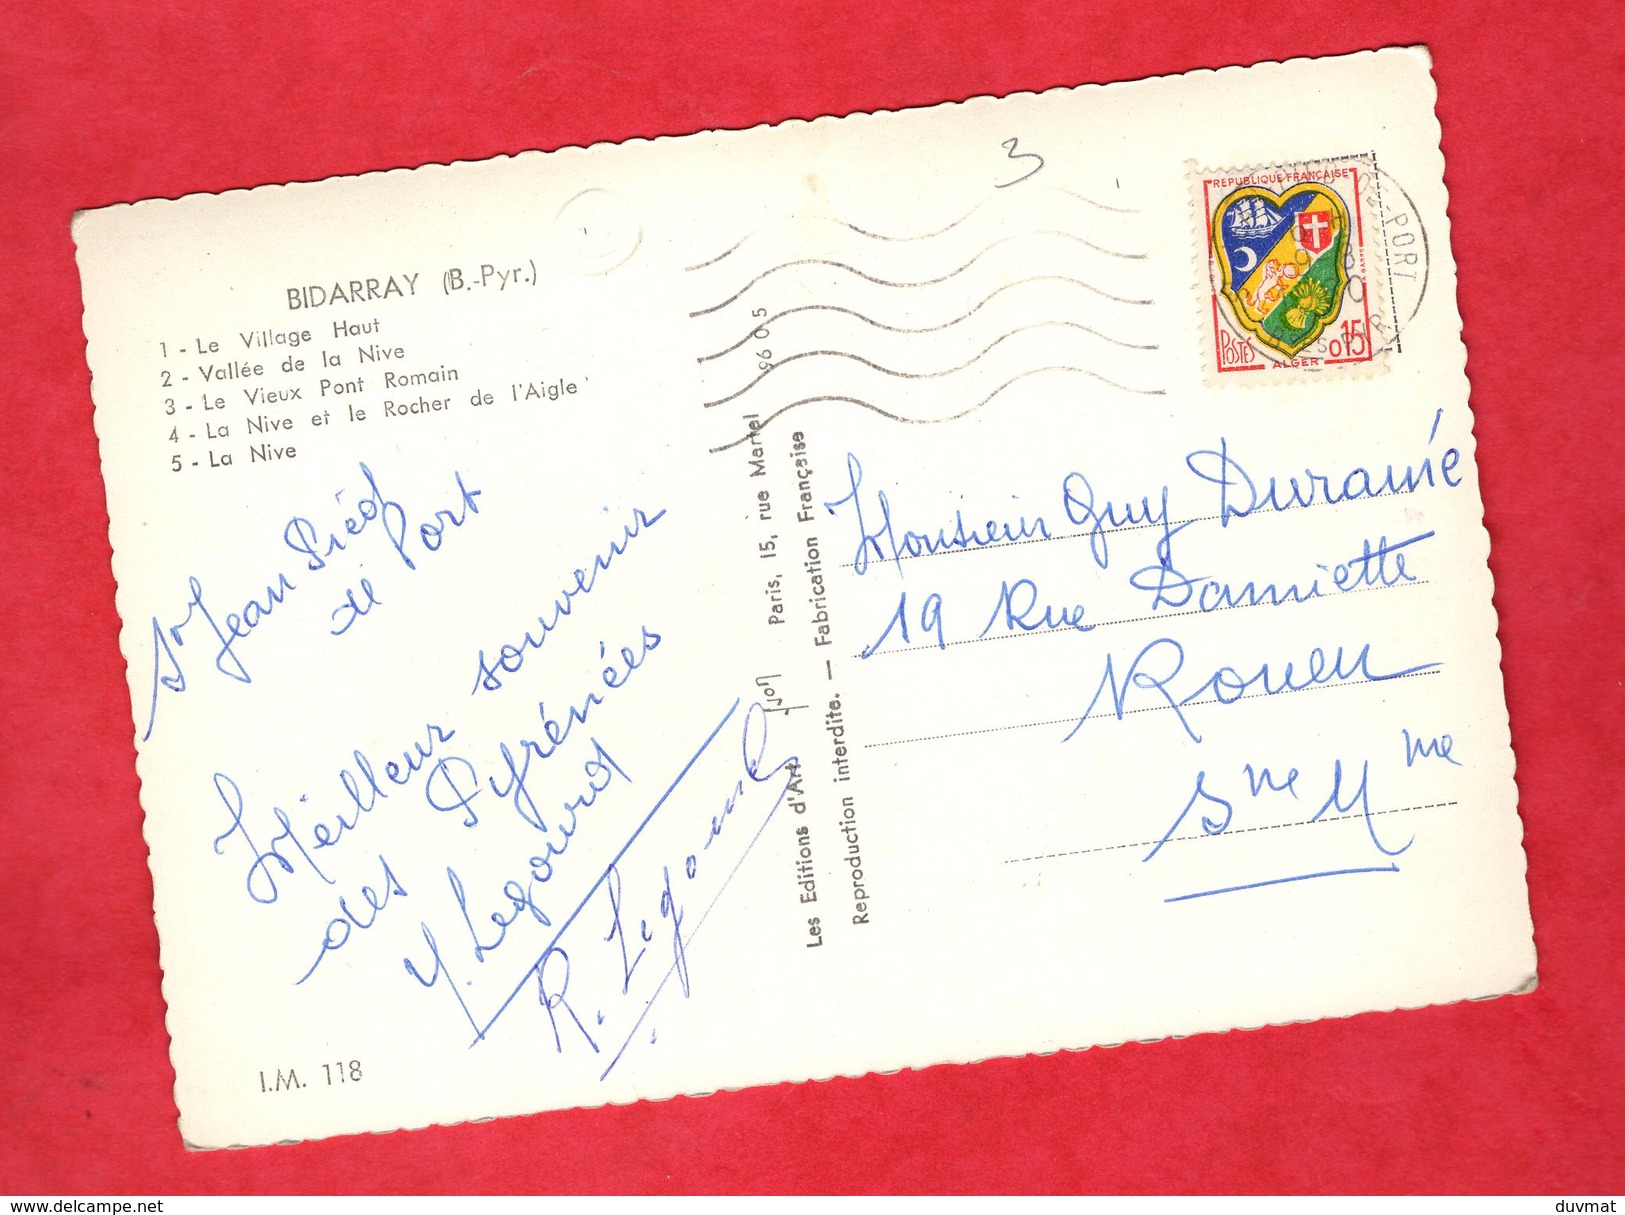 BIDARRAY (B.-Pyr.)
1 - Le Village Haut
2 - Vallée de la Nive
3 - Le Vieux Pont Romain
4 - La Nive et le Rocher de l'Aigle
5 - La Nive
St Jean Pied
de Port
Meilleur souvenir
des Pyrénées
Y. Legourd
R. Legourd
I.M. 118
Les Editions d'Art Yvon Paris, 15, rue Martel 96 05
Reproduction interdite. — Fabrication Française
3
REPUBLIQUE FRANÇAISE
POSTES
ALGER
0,15
DE-PORT
Monsieur Guy Duramé
19 Rue Damiette
Rouen
Sne Mme
duvmat
www.delcampe.net